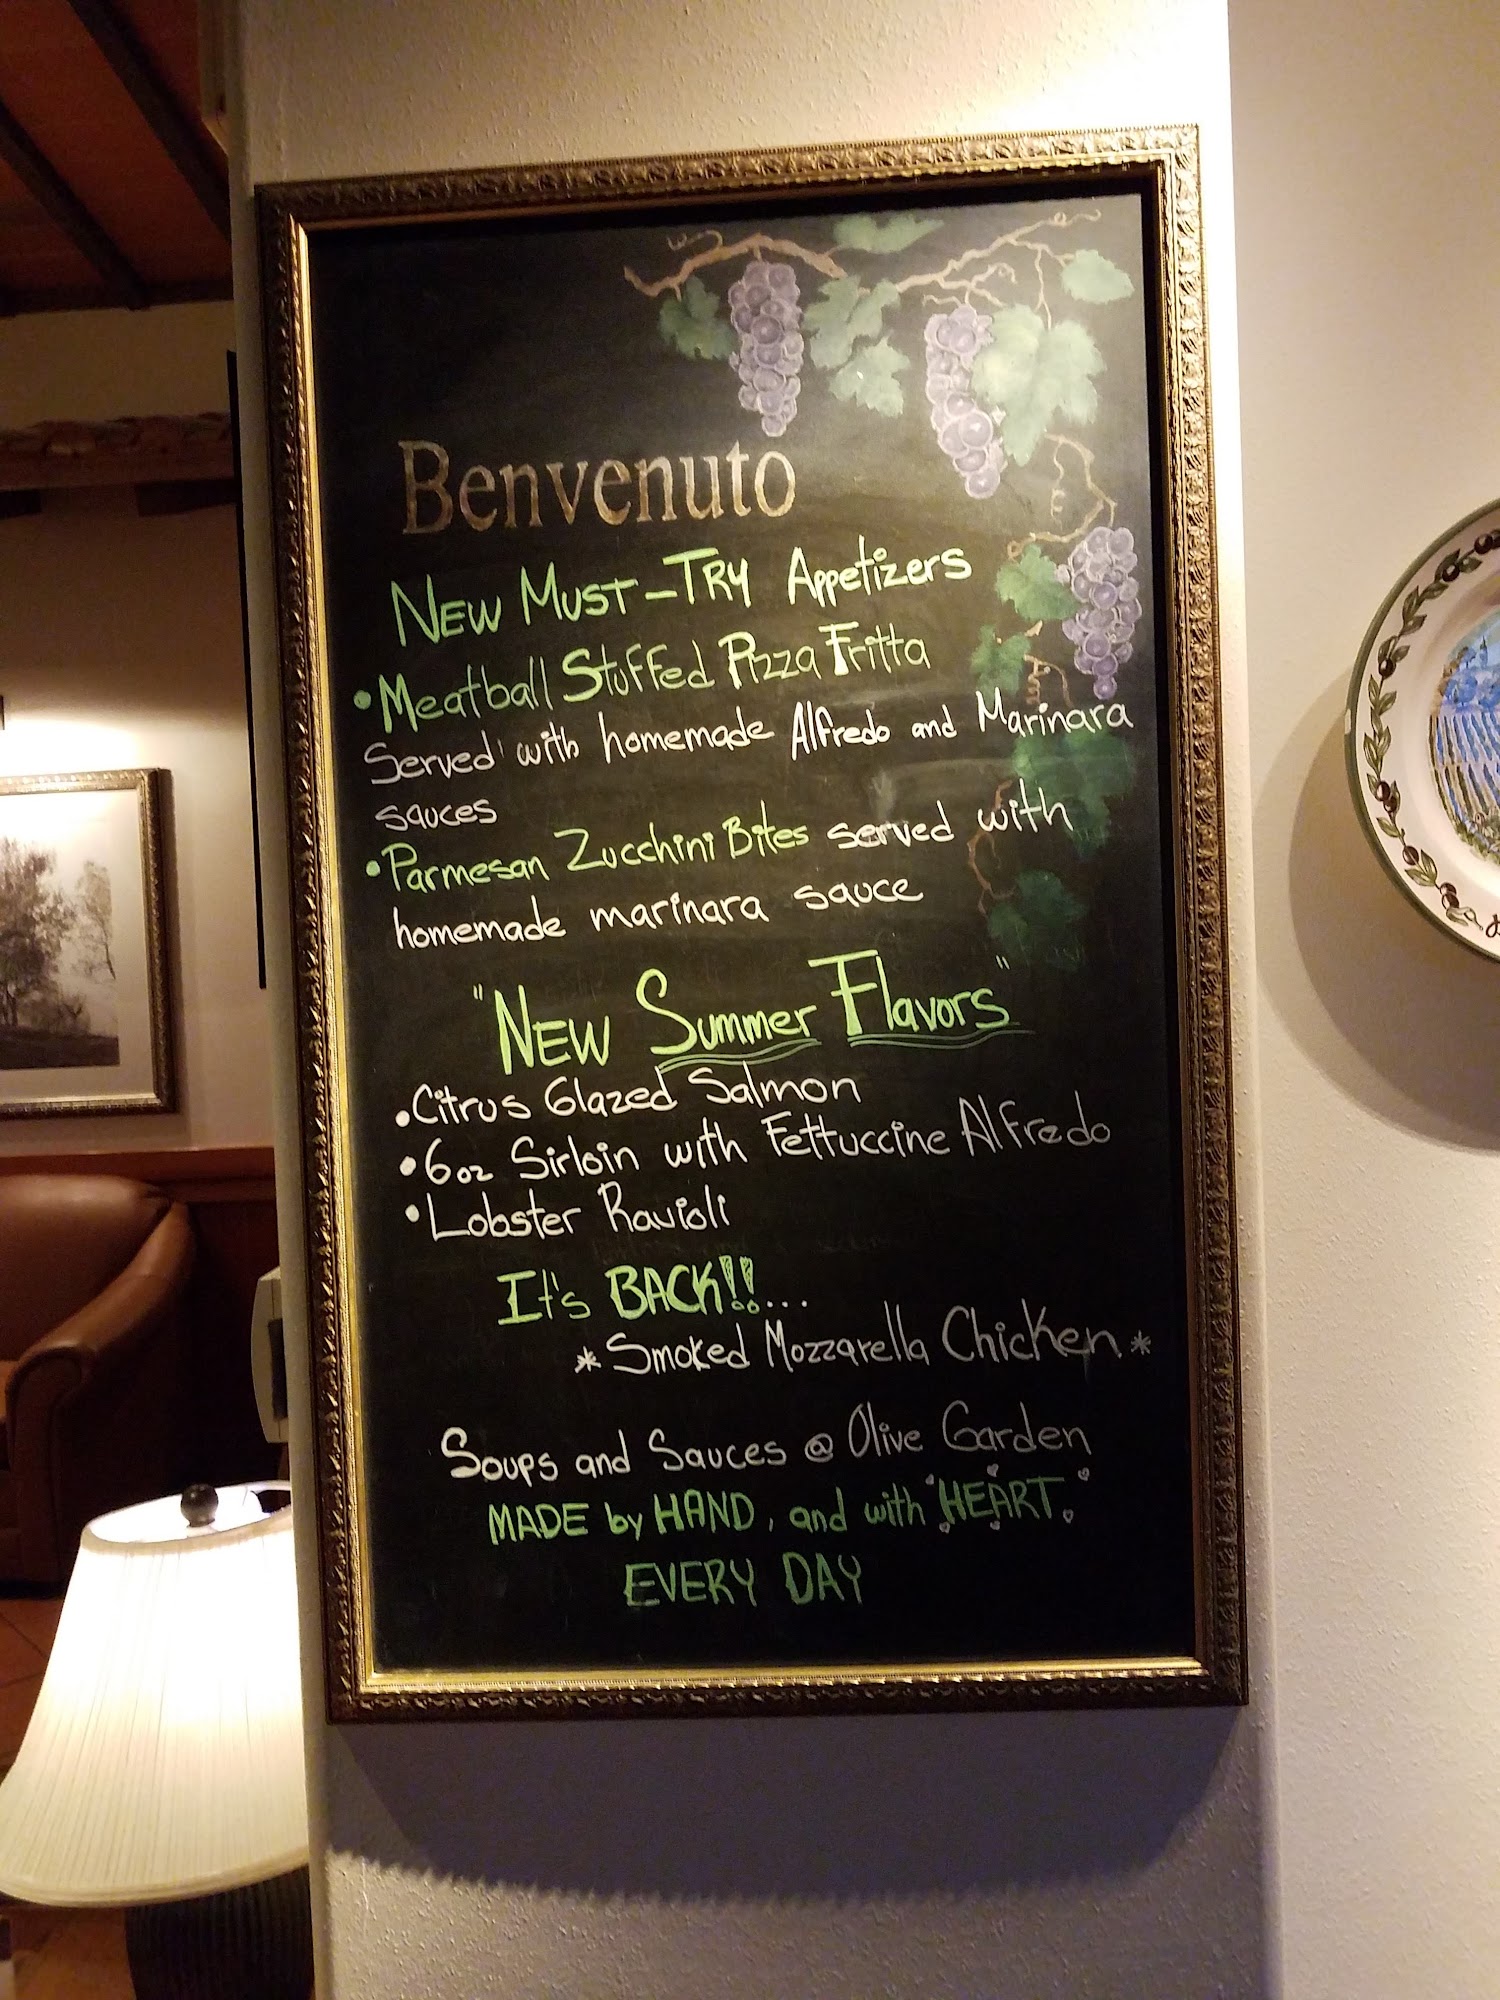 Benvenuto
New Must-Try Appetizers
• Meatball Stuffed Pizza Fritta
Served with homemade Alfredo and Marinara
sauces
• Parmesan Zucchini Bites served with
homemade marinara sauce
"New Summer Flavors"
• Citrus Glazed Salmon
• 6oz Sirloin with Fettuccine Alfredo
• Lobster Ravioli
It's BACK!!...
* Smoked Mozzarella Chicken *
Soups and Sauces @ Olive Garden
MADE by HAND, and with HEART
EVERY DAY